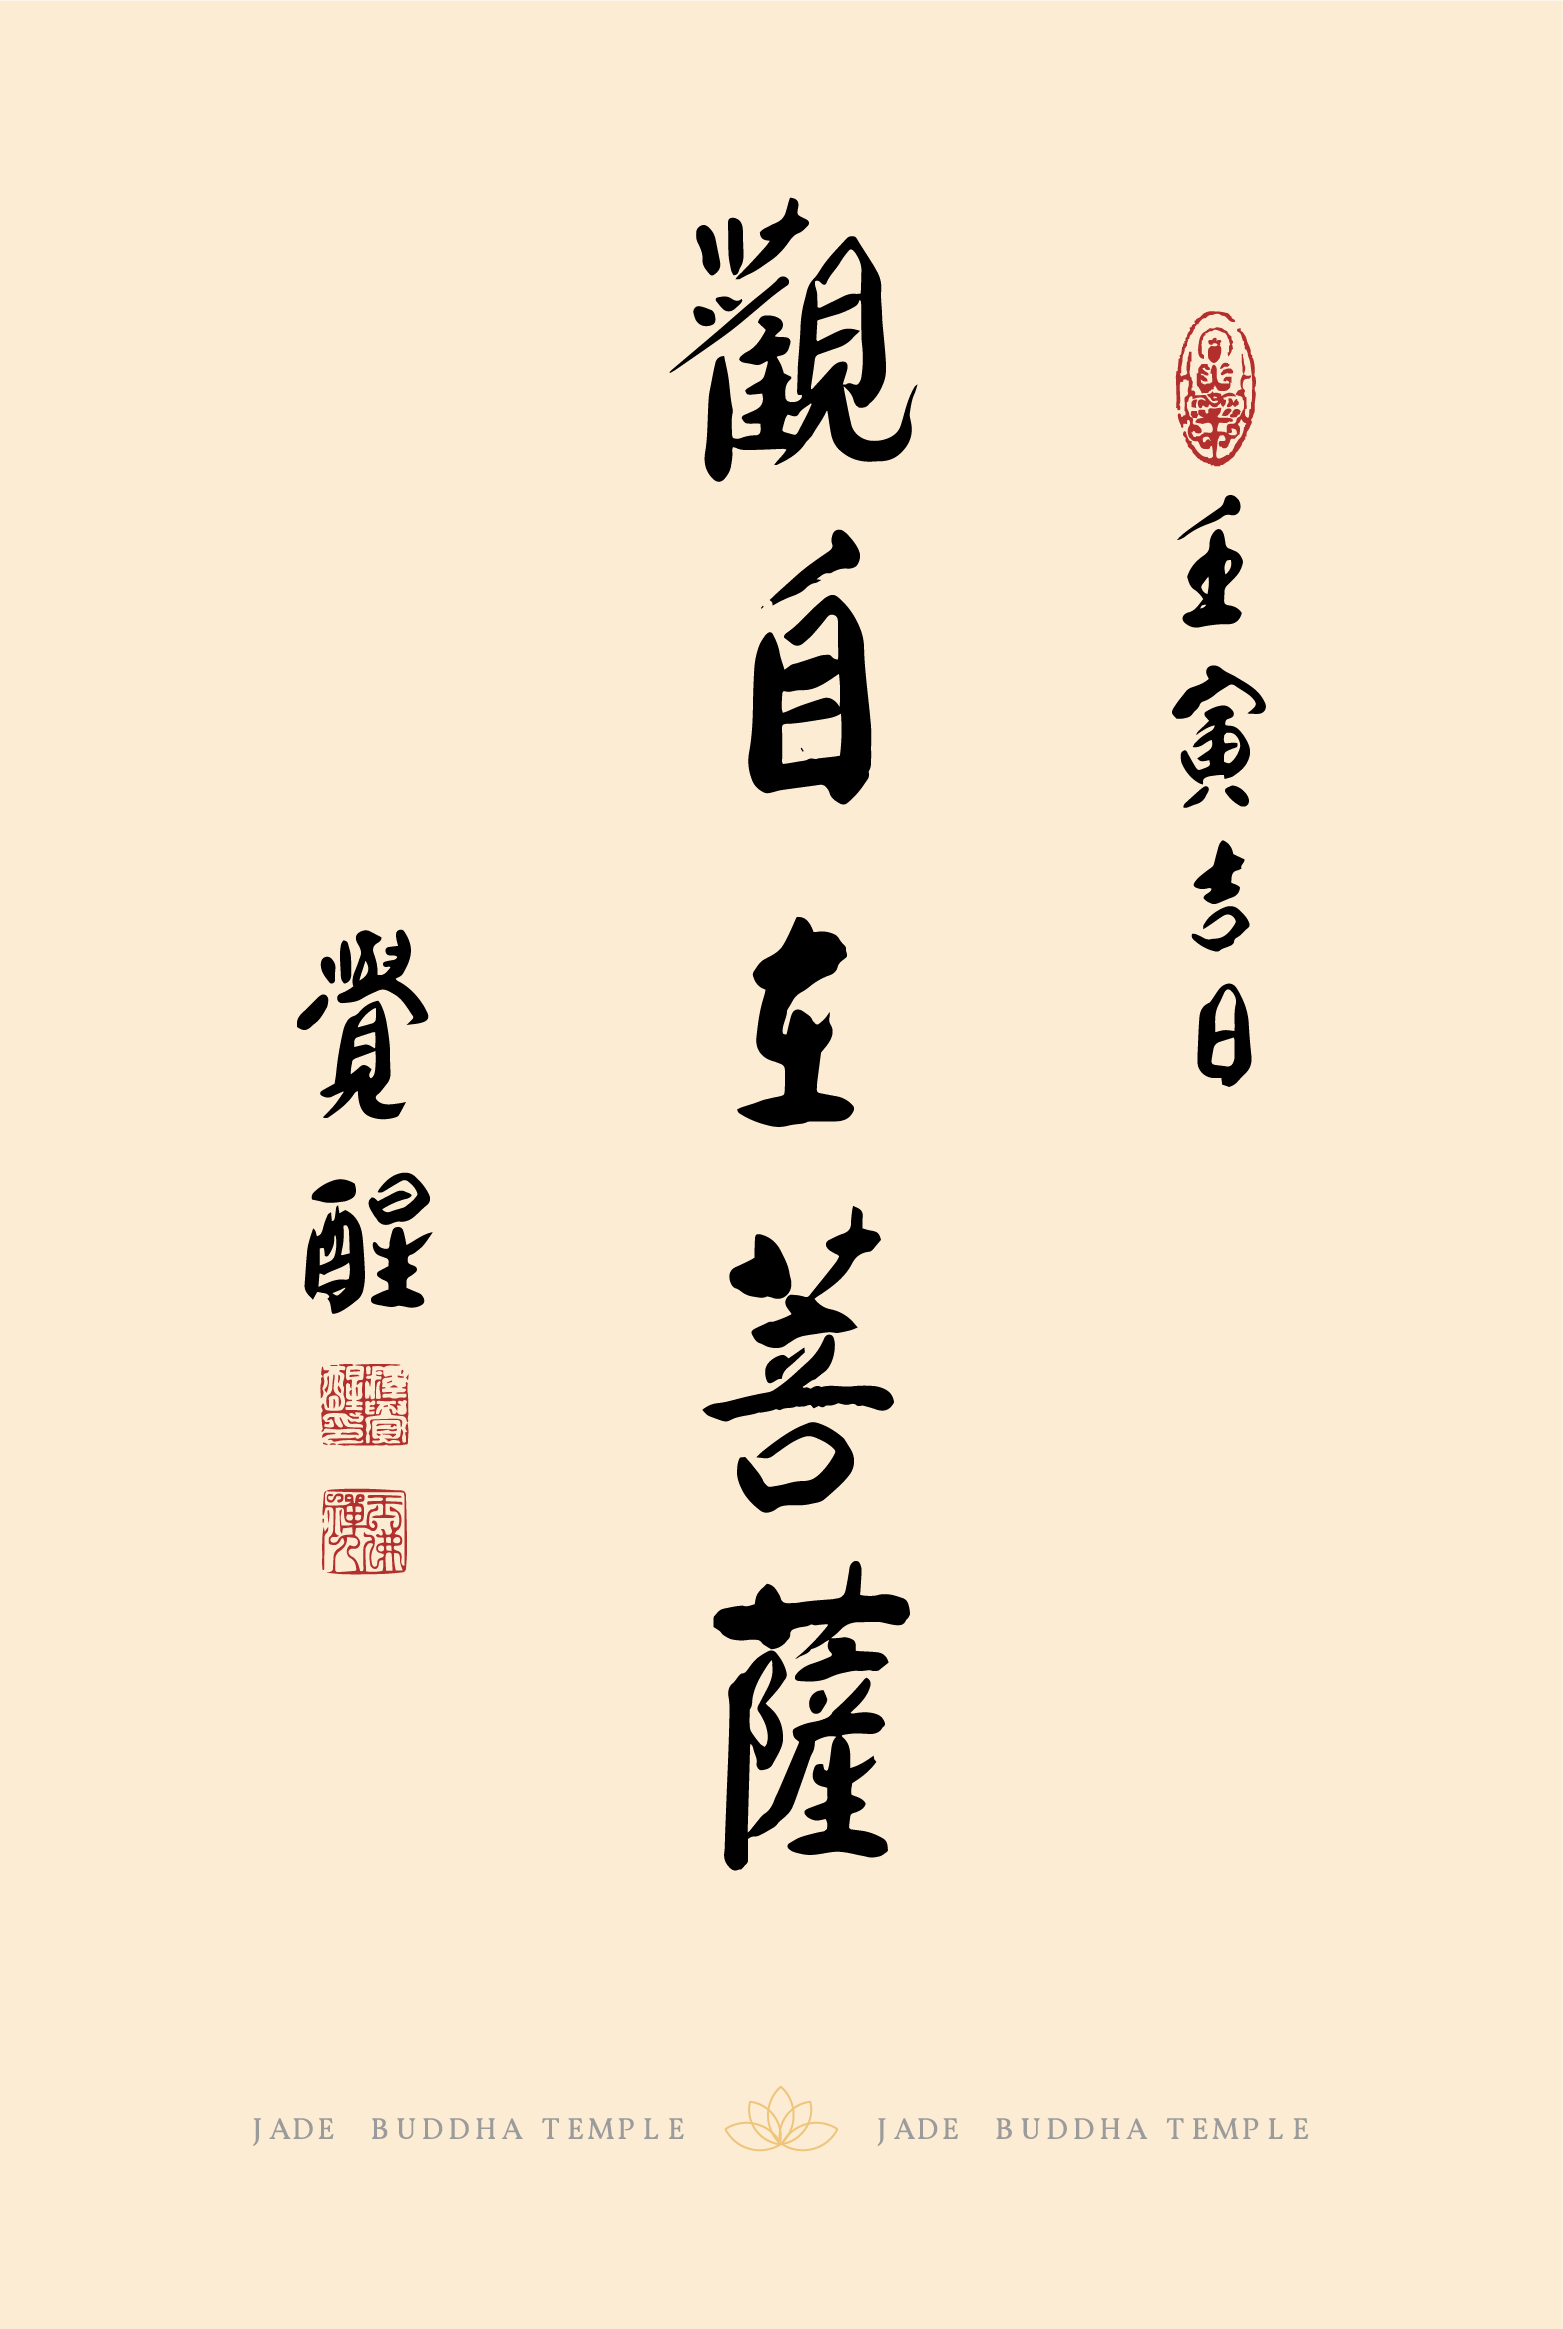 壬寅吉日
觀自在菩薩
覺醒
釋覺醒印
玉佛禪院
JADE BUDDHA TEMPLE JADE BUDDHA TEMPLE